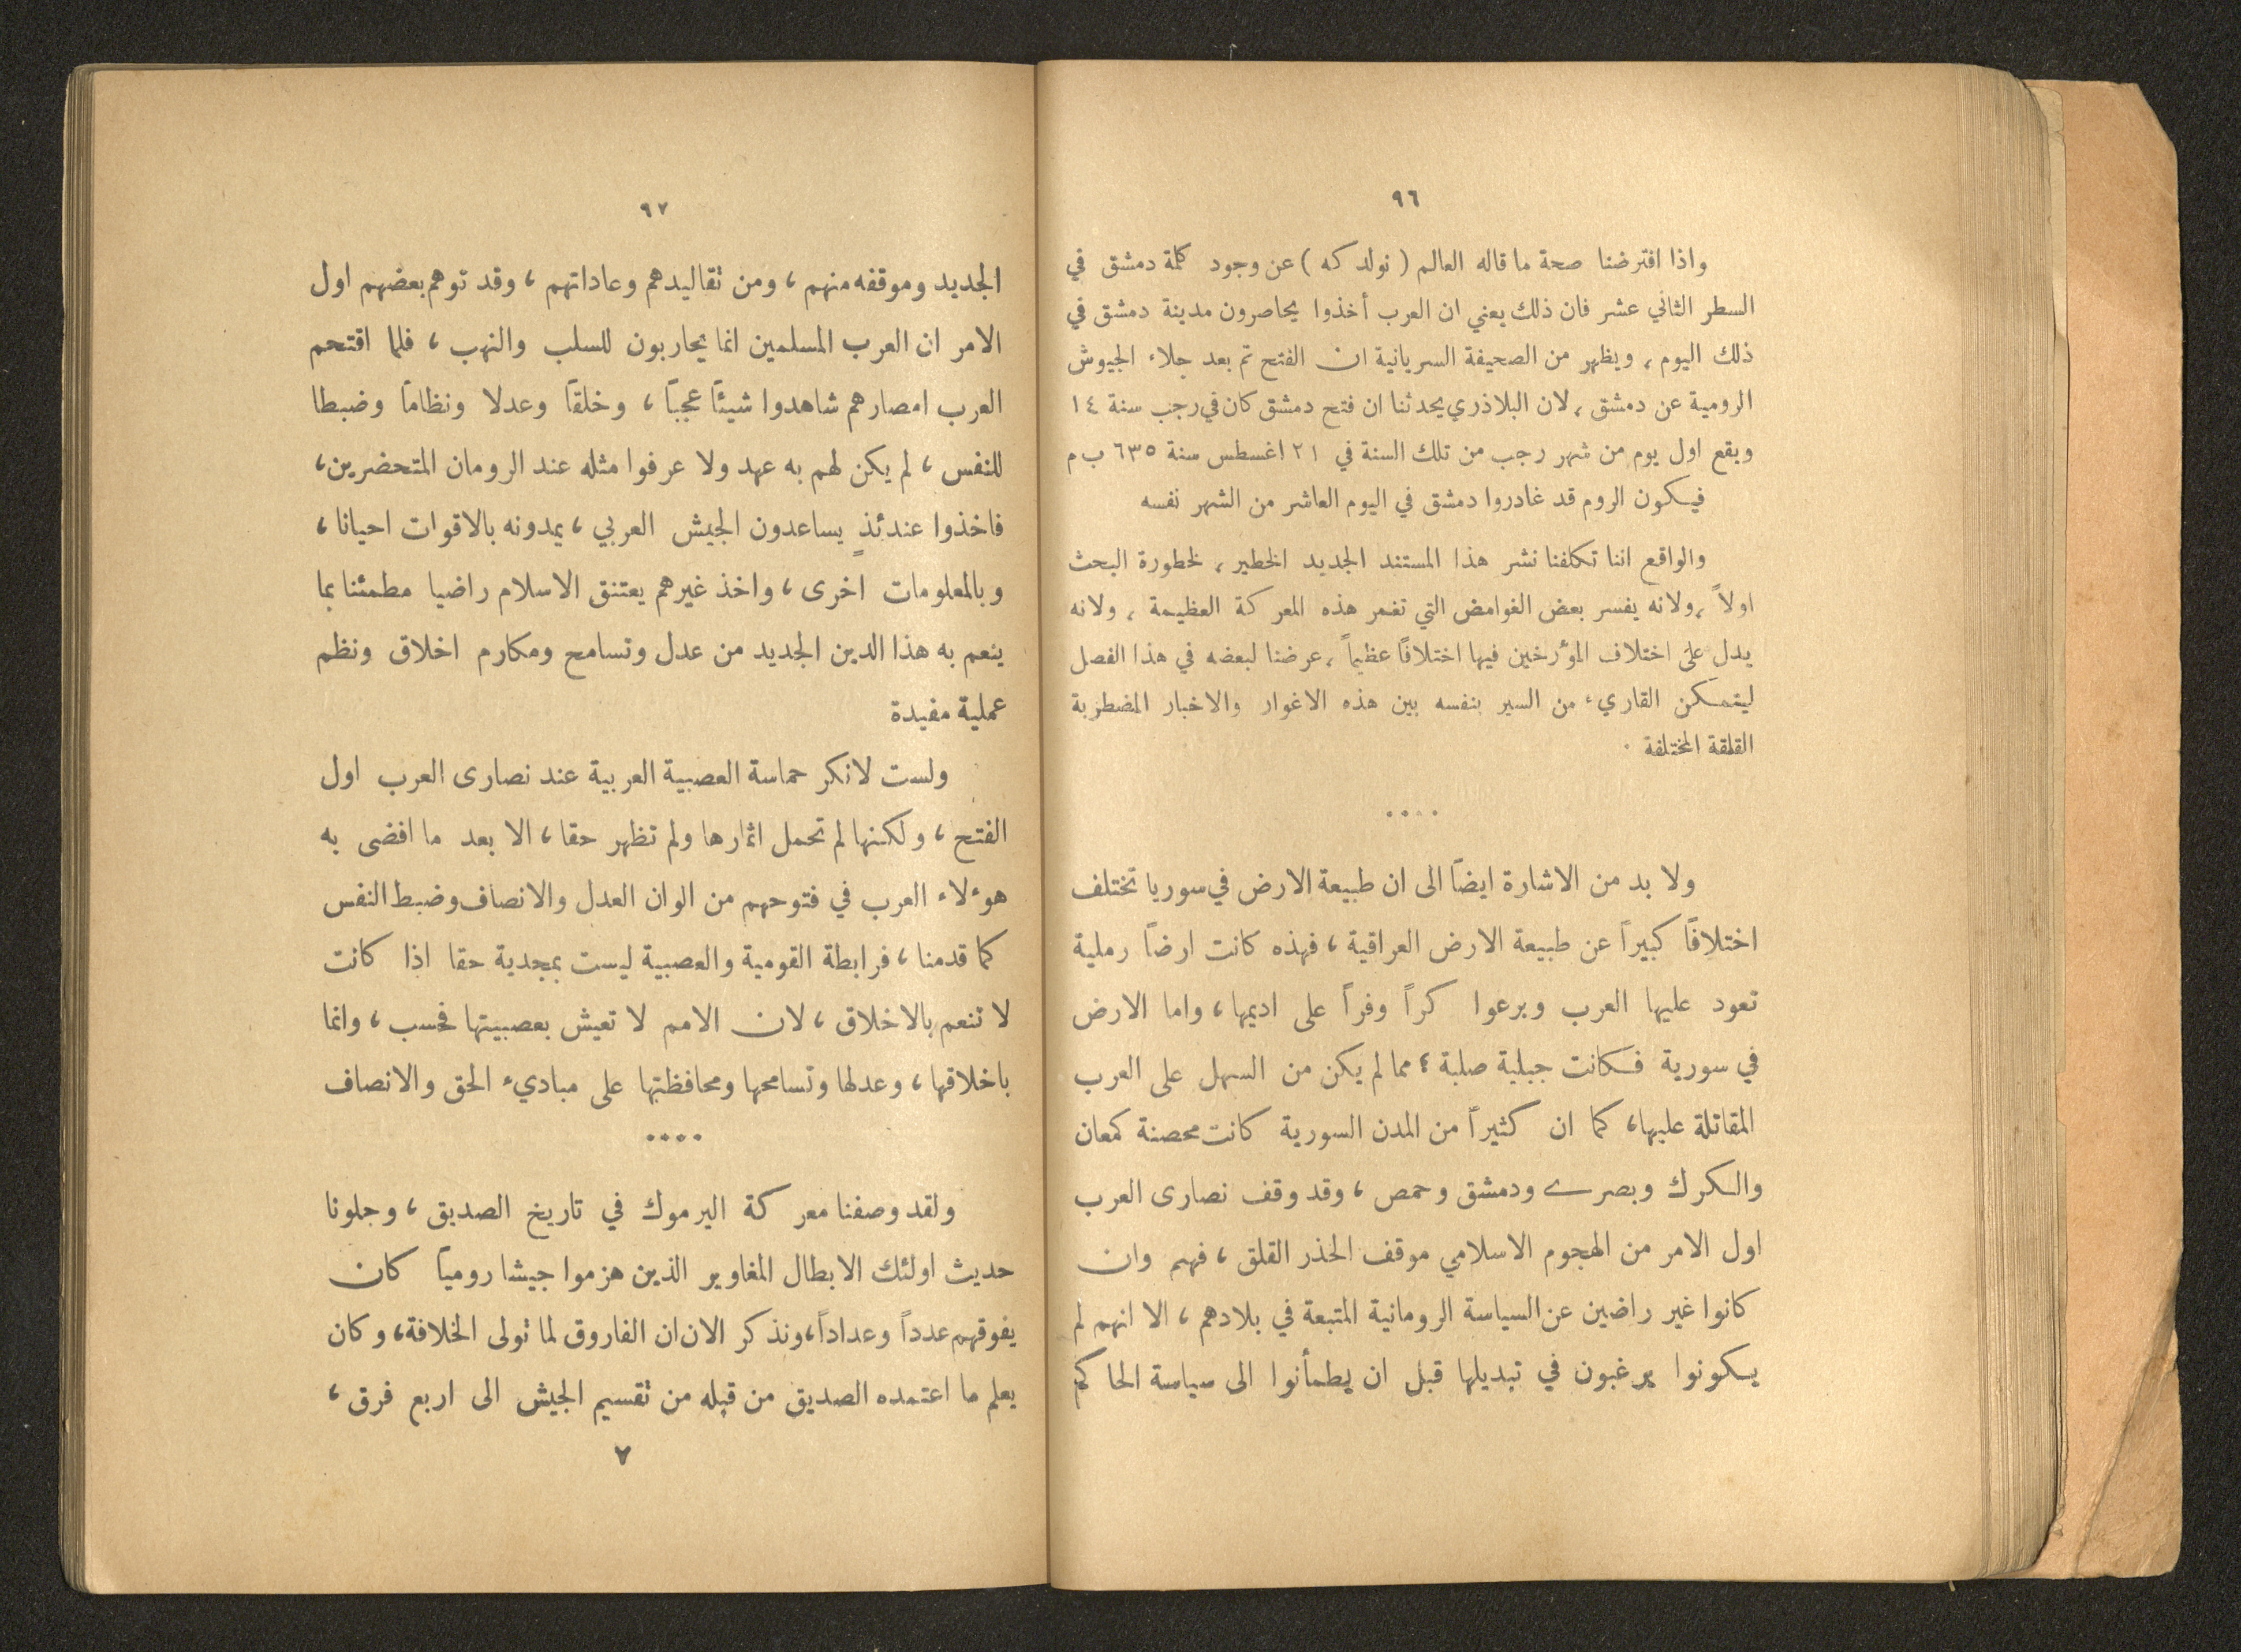 ٩٦
واذا افترضنا صحة ما قاله العالم ( نولد كه ) عن وجود كلمة دمشق في
السطر الثاني عشر فان ذلك يعني ان العرب أخذوا يحاصرون مدينة دمشق في
ذلك اليوم ، ويظهر من الصحيفة السريانية ان الفتح تم بعد جلاء الجيوش
الرومية عن دمشق ، لان البلاذري يحدثنا ان فتح دمشق كان في رجب سنة ١٤
ويقع اول يوم من شهر رجب من تلك السنة في ٢١ اغسطس سنة ٦٣٥ ب م
فيكون الروم قد غادروا دمشق في اليوم العاشر من الشهر نفسه
والواقع اننا تكلفنا نشر هذا المستند الجديد الخطير ، لخطورة البحث
اولاً ، ولانه يفسر بعض الغوامض التي تغمر هذه المعركة العظيمة ، ولانه
يدل على اختلاف المؤرخين فيها اختلافاً عظيماً ، عرضنا لبعضه في هذا الفصل
ليتمكن القاريء من السير بنفسه بين هذه الاغوار والاخبار المضطربة
القلقة المختلفة .
....
ولا بد من الاشارة ايضاً الى ان طبيعة الارض في سوريا تختلف
اختلافاً كبيراً عن طبيعة الارض العراقية ، فهذه كانت ارضاً رملية
تعود عليها العرب وبرعوا كراً وفراً على اديمها ، واما الارض
في سورية فكانت جبلية صلبة ؛ مما لم يكن من السهل على العرب
المقاتلة عليها ، كما ان كثيراً من المدن السورية كانت محصنة كمعان
والكرك وبصرى ودمشق وحمص ، وقد وقف نصارى العرب
اول الامر من الهجوم الاسلامي موقف الحذر القلق ، فهم وان
كانوا غير راضين عن السياسة الرومانية المتبعة في بلادهم ، الا انهم لم
يكونوا يرغبون في تبديلها قبل ان يطمأنوا الى سياسة الحاكم
٩٧
الجديد وموقفه منهم ، ومن تقاليدهم وعاداتهم ، وقد توهم بعضهم اول
الامر ان العرب المسلمين انما يحاربون للسلب والنهب ، فلما اقتحم
العرب امصارهم شاهدوا شيئاً عجباً ، وخلقاً وعدلا ونظاماً وضبطا
للنفس ، لم يكن لهم به عهد ولا عرفوا مثله عند الرومان المتحضرين ،
فاخذوا عندئذٍ يساعدون الجيش العربي ، يمدونه بالاقوات احيانا ،
وبالمعلومات اخرى ، واخذ غيرهم يعتنق الاسلام راضيا مطمئنا بما
ينعم به هذا الدين الجديد من عدل وتسامح ومكارم اخلاق ونظم
عملية مفيدة
ولست لانكر حماسة العصبية العربية عند نصارى العرب اول
الفتح ، ولكنها لم تحمل اثمارها ولم تظهر حقا ، الا بعد ما افضى به
هؤلاء العرب في فتوحهم من الوان العدل والانصاف وضبط النفس
كما قدمنا ، فرابطة القومية والعصبية ليست بمجدية حقا اذا كانت
لا تنعم بالاخلاق ، لان الامم لا تعيش بعصبيتها فحسب ، وانما
باخلاقها ، وعدلها وتسامحها ومحافظتها على مباديء الحق والانصاف
....
ولقد وصفنا معركة اليرموك في تاريخ الصديق ، وجلونا
حديث اولئك الابطال المغاوير الذين هزموا جيشا رومياً كان
يفوقهم عدداً وعداداً ، ونذكر الان ان الفاروق لما تولى الخلافة ، وكان
يعلم ما اعتمده الصديق من قبله من تقسيم الجيش الى اربع فرق ،
٧